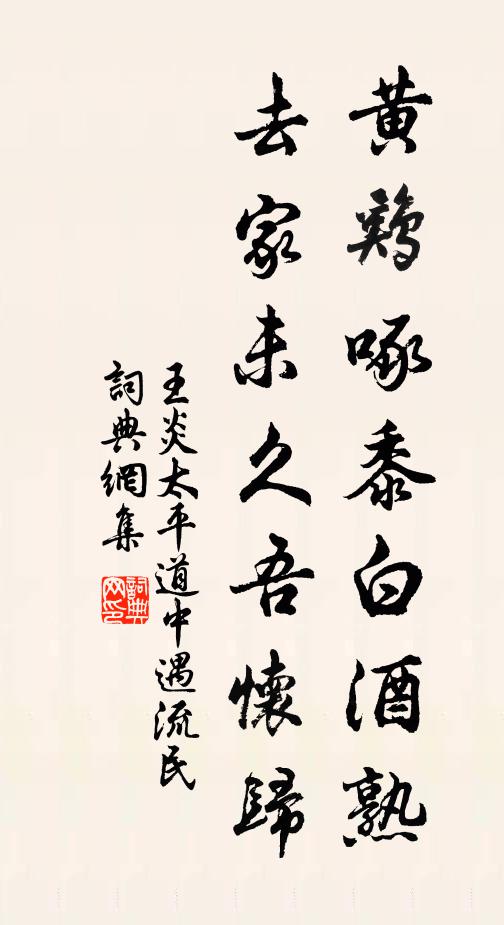 黄鷄啄黍白酒熟
去家未久吾懷歸
王炎太平道中遇流民
詞典網集
詞典網印